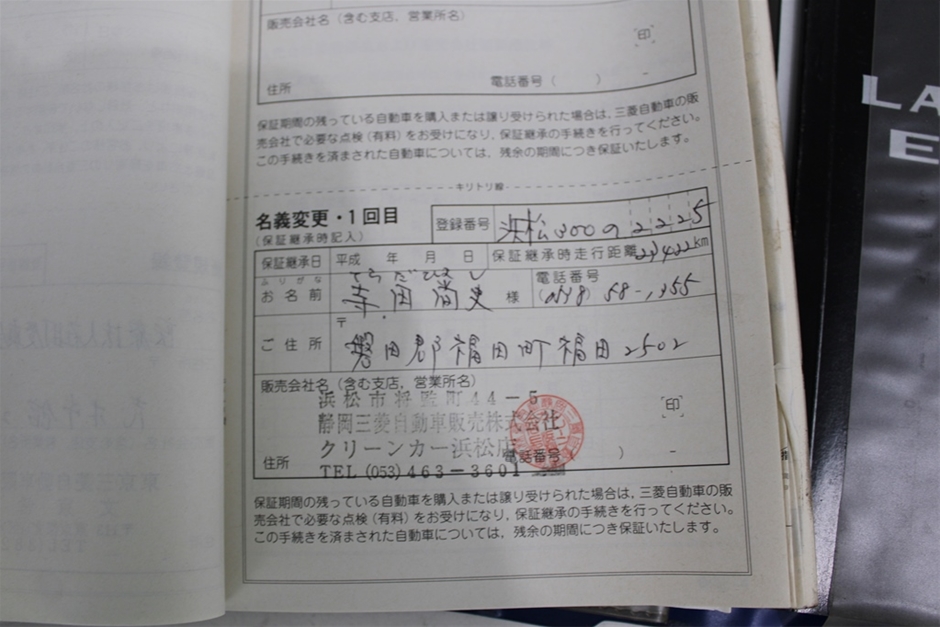 販売会社名（含む支店，営業所名）
印
住所 電話番号（ ） -
保証期間の残っている自動車を購入または譲り受けられた場合は，三菱自動車の販
売会社で必要な点検（有料）をお受けになり，保証継承の手続きを行ってください。
この手続きを済まされた自動車については，残余の期間につき保証いたします。
キリトリ線
名義変更・1回目
（保証継承時記入）
登録番号 浜松300の2225
保証継承日 平成 年 月 日 保証継承時走行距離 23422km
ふりがな てらだひさし
お名前 寺田尚史 様 電話番号 (0538) 58-1355
〒
ご住所 磐田郡福田町福田2502
販売会社名（含む支店，営業所名）
浜松市将監町44-5
静岡三菱自動車販売株式会社
印
クリーンカー浜松店
住所 電話番号 ） -
TEL (053) 463-3601
保証期間の残っている自動車を購入または譲り受けられた場合は，三菱自動車の販
売会社で必要な点検（有料）をお受けになり，保証継承の手続きを行ってください。
この手続きを済まされた自動車については，残余の期間につき保証いたします。
LA
E